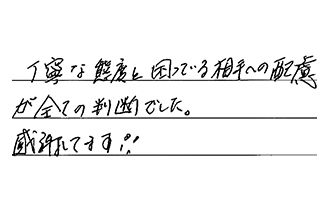 丁寧な態度と困ってる相手への配慮
が全ての判断でした。
感謝してます!!